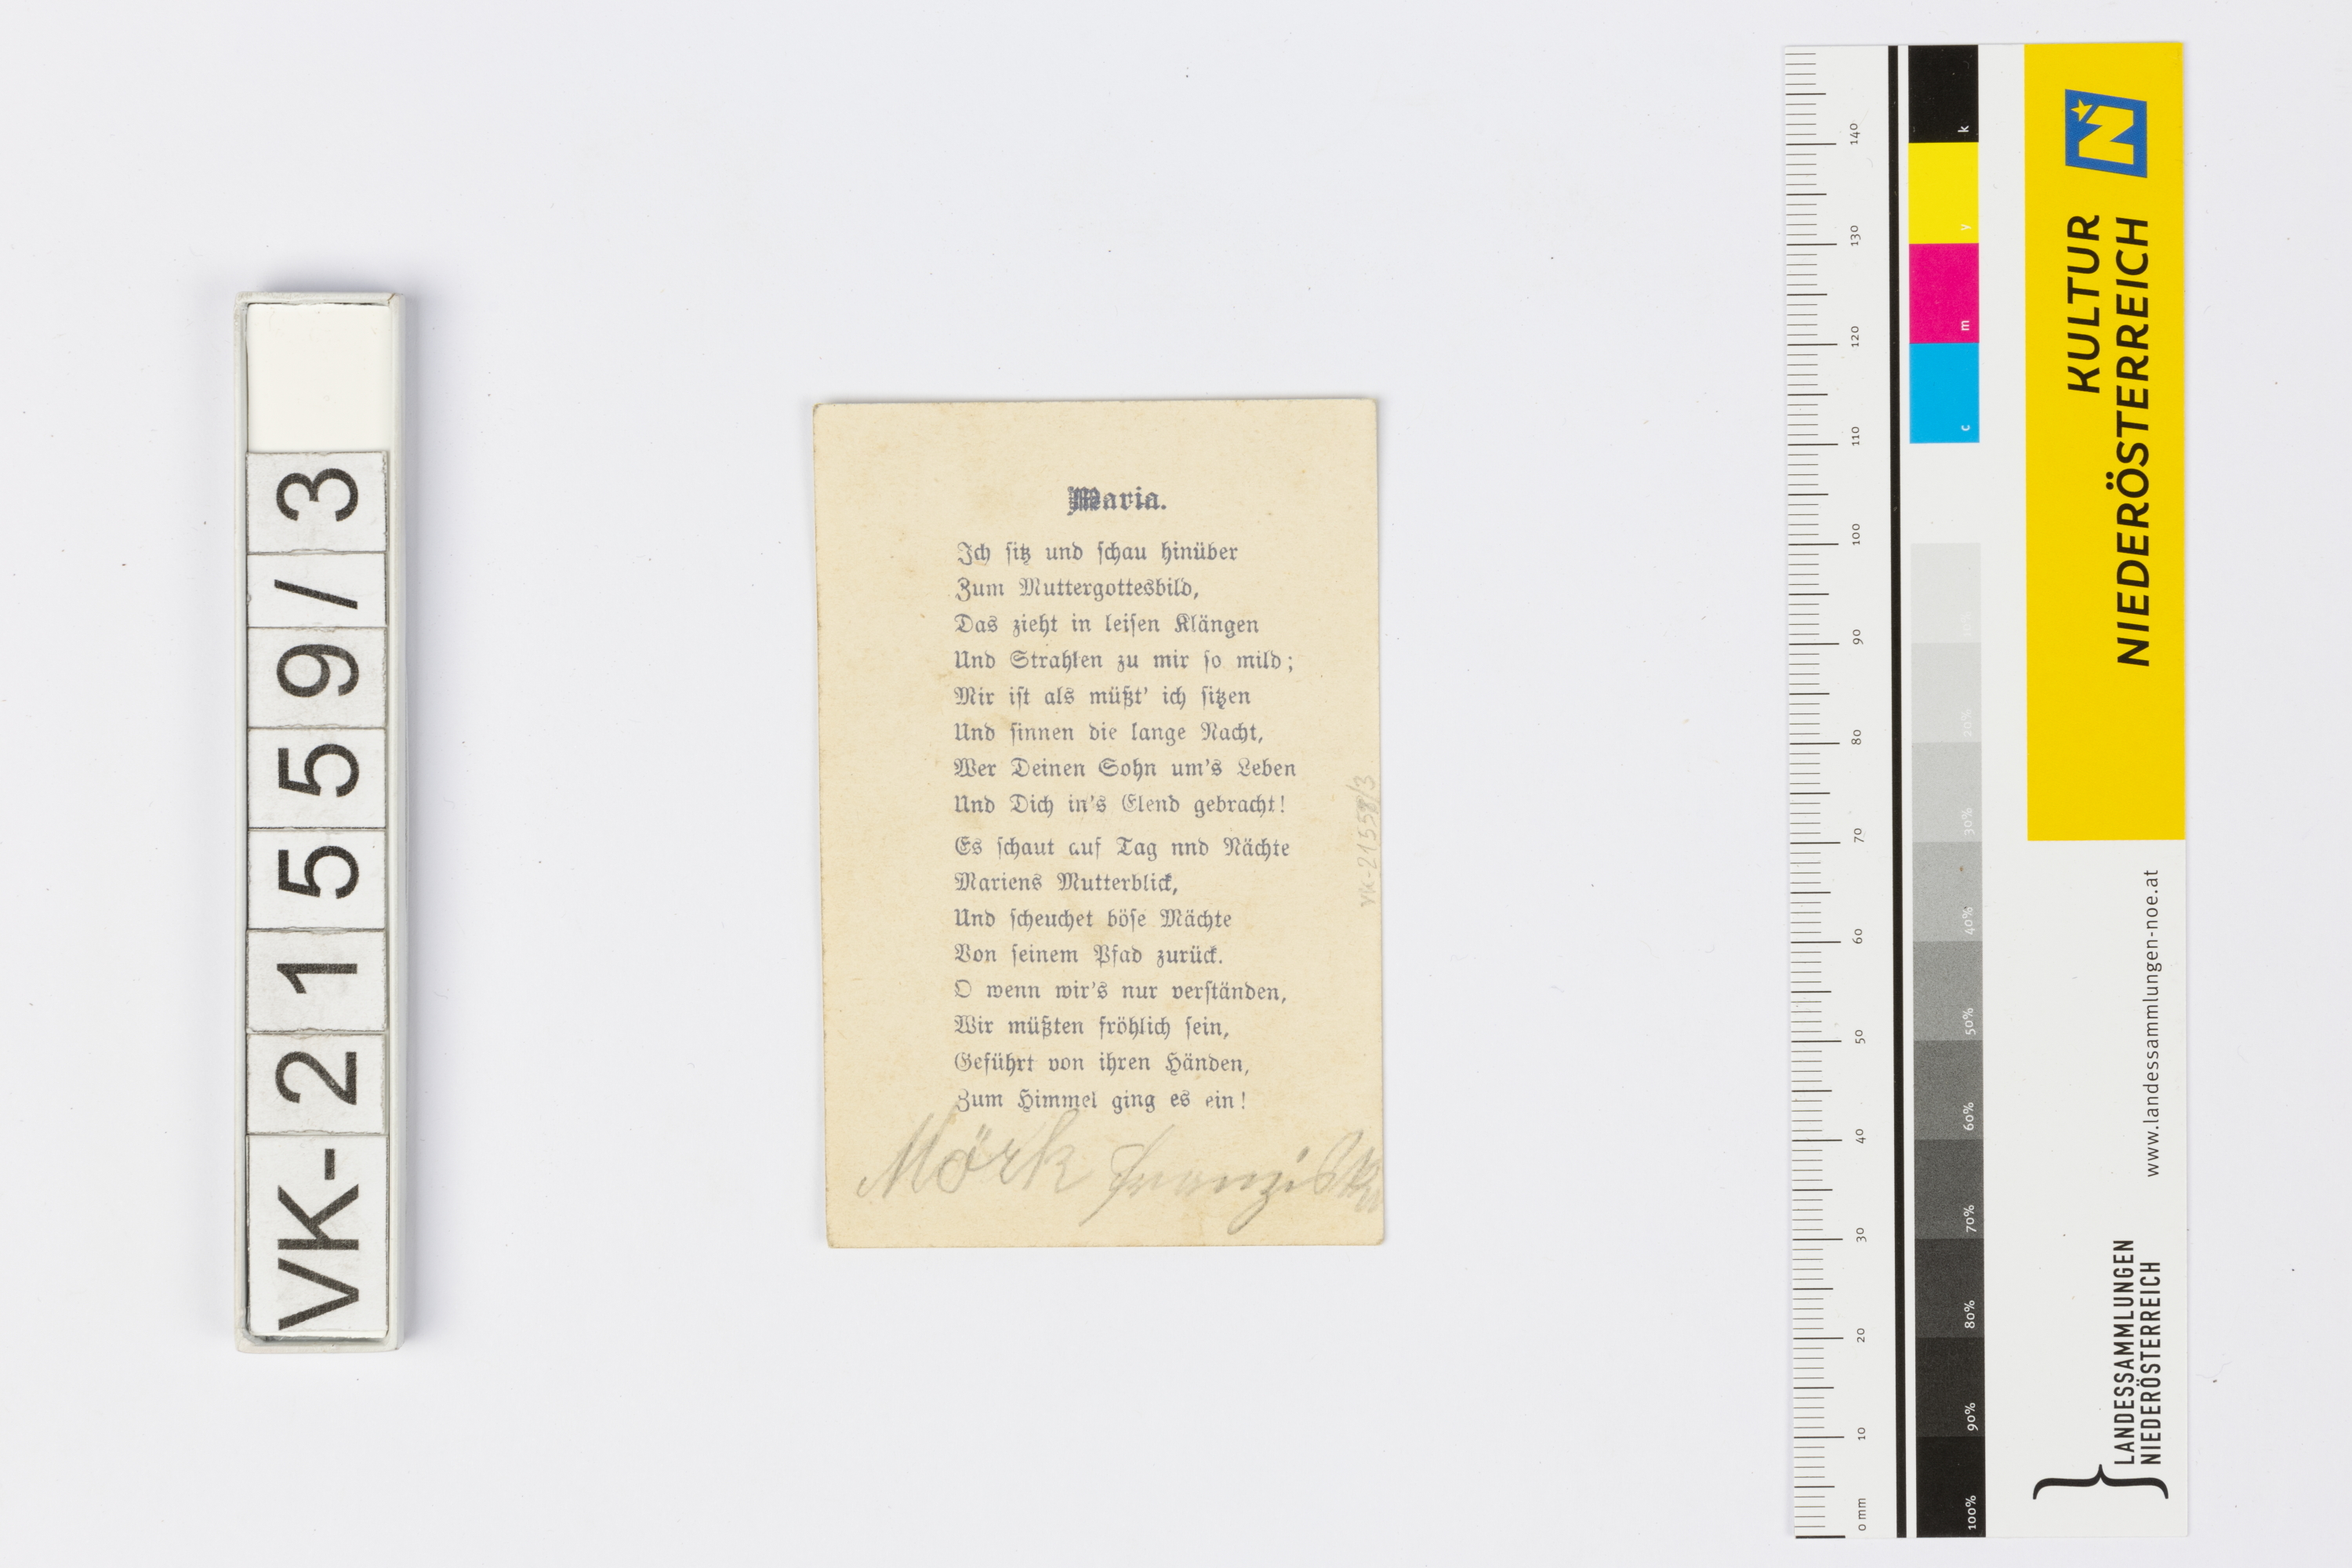 VK-21559/3
Maria.
Ich sitz und schau hinüber
Zum Muttergottesbild,
Das zieht in leisen Klängen
Und Strahlen zu mir so mild;
Mir ist als müßt' ich sitzen
Und sinnen die lange Nacht,
Wer Deinen Sohn um's Leben
Und Dich in's Elend gebracht!
Es schaut auf Tag nnd Nächte
Mariens Mutterblick,
Und scheuchet böse Mächte
Von seinem Pfad zurück.
O wenn wir's nur verständen,
Wir müßten fröhlich sein,
Geführt von ihren Händen,
Zum Himmel ging es ein!
Mörk Franziska
140
130
120
110
100
90
80
70
60
50
40
30
20
10
0 mm
k
y
m
c
20%
30%
40%
50%
60%
70%
80%
90%
100%
KULTUR
NIEDERÖSTERREICH
www.landessammlungen-noe.at
LANDESSAMMLUNGEN
NIEDERÖSTERREICH